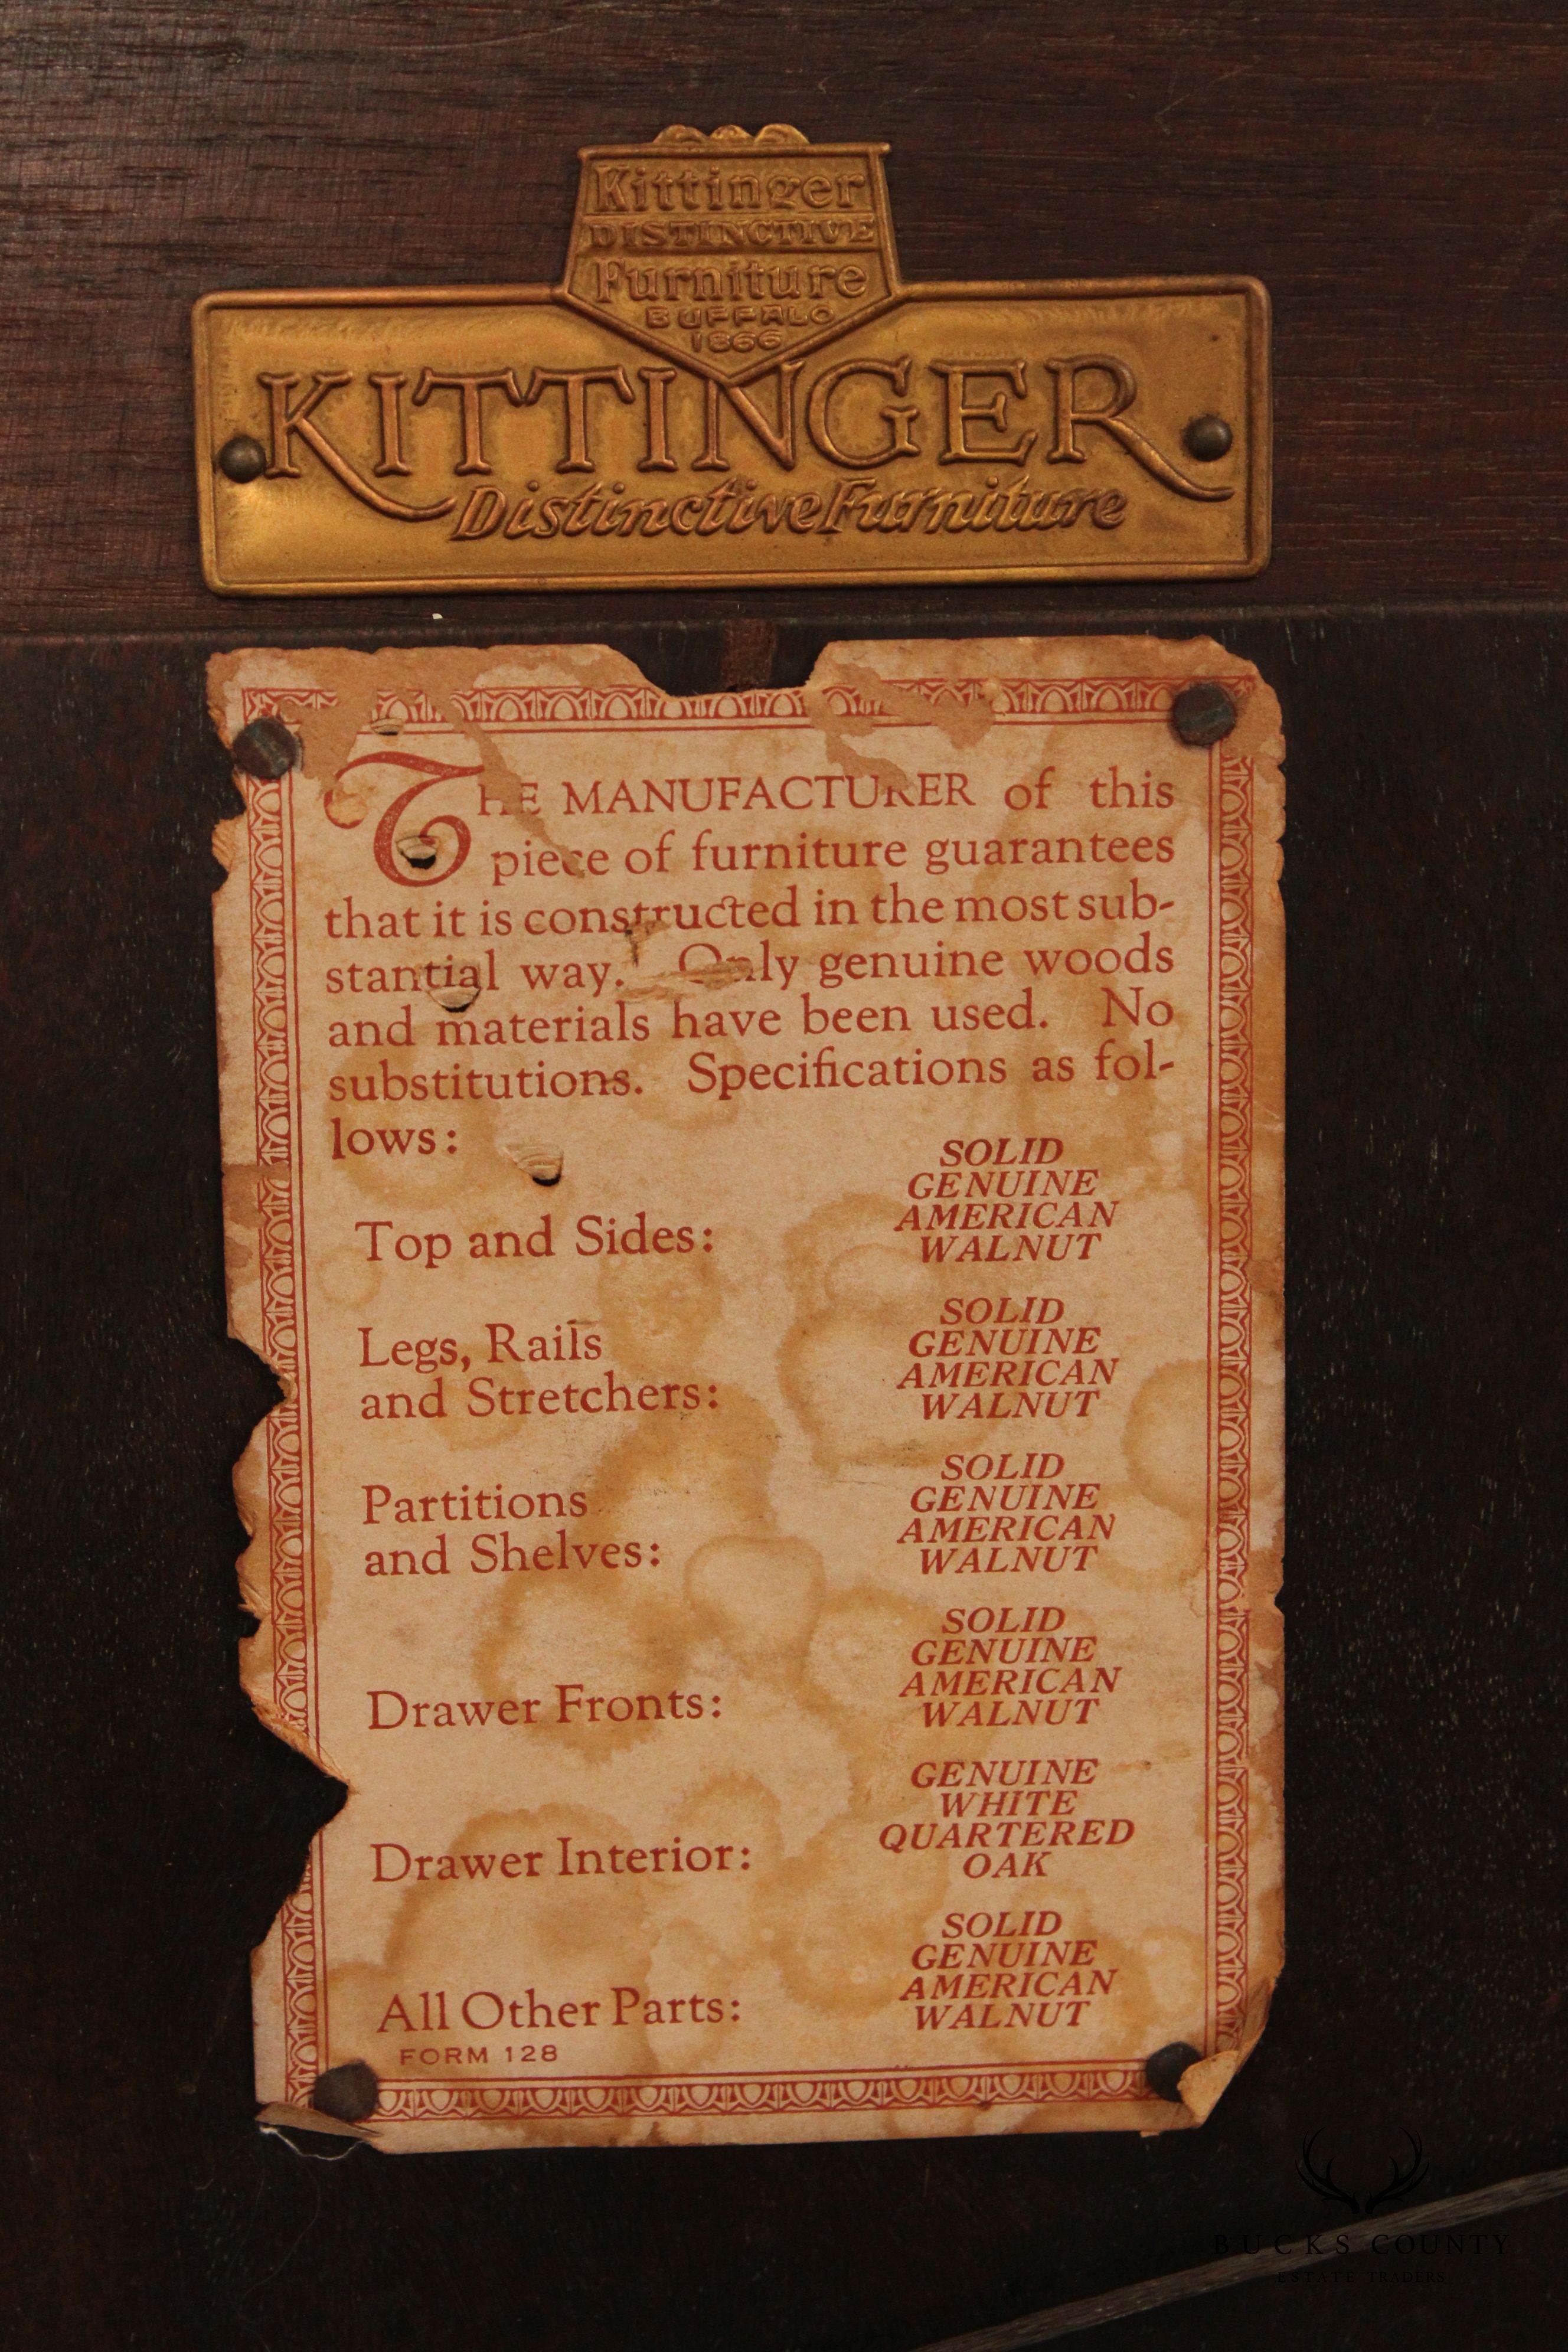 Kittinger
DISTINCTIVE
Furniture
BUFFALO
1866
KITTINGER
Distinctive Furniture
THE MANUFACTURER of this
piece of furniture guarantees
that it is constructed in the most sub-
stantial way. Only genuine woods
and materials have been used. No
substitutions. Specifications as fol-
lows:
Top and Sides:
SOLID
GENUINE
AMERICAN
WALNUT
Legs, Rails
and Stretchers:
SOLID
GENUINE
AMERICAN
WALNUT
Partitions
and Shelves:
SOLID
GENUINE
AMERICAN
WALNUT
Drawer Fronts:
SOLID
GENUINE
AMERICAN
WALNUT
Drawer Interior:
GENUINE
WHITE
QUARTERED
OAK
All Other Parts:
SOLID
GENUINE
AMERICAN
WALNUT
FORM 128
BUCKS COUNTY
ESTATE TRADERS